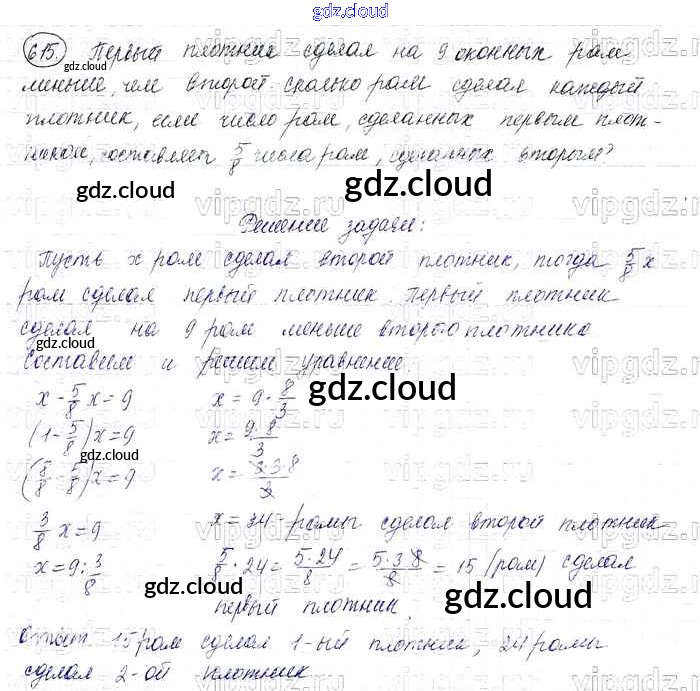 gdz.cloud
615. Первый плотник сделал на 9 оконных рам
gdz.cloud
меньше, чем второй. Сколько рам сделал каждый
плотник, если число рам, сделанных первым плот-
ником, составляет 5/8 числа рам, сделанных вторым?
gdz.cloud gdz.cloud
Решение задачи:
Пусть x рам сделал второй плотник, тогда 5/8 x
рам сделал первый плотник. Первый плотник
сделал на 9 рам меньше второго плотника
gdz.cloud
Составим и решим уравнение.
x - 5/8 x = 9 x = 9 · 8/3
gdz.cloud
(1 - 5/8) x = 9 x = 9·8/3
gdz.cloud
(8/8 - 5/8) x = 9 x = 3·3·8/3
3/8 x = 9 x = 34 - рамы сделал второй плотник
x = 9 : 3/8 5/8 · 24 = 5·24/8 = 5·3·8/8 = 15 (рам) сделал
gdz.cloud gdz.cloud
первый плотник
Ответ. 15 рам сделал 1-ый плотник, 24 рамы
сделал 2-ой плотник